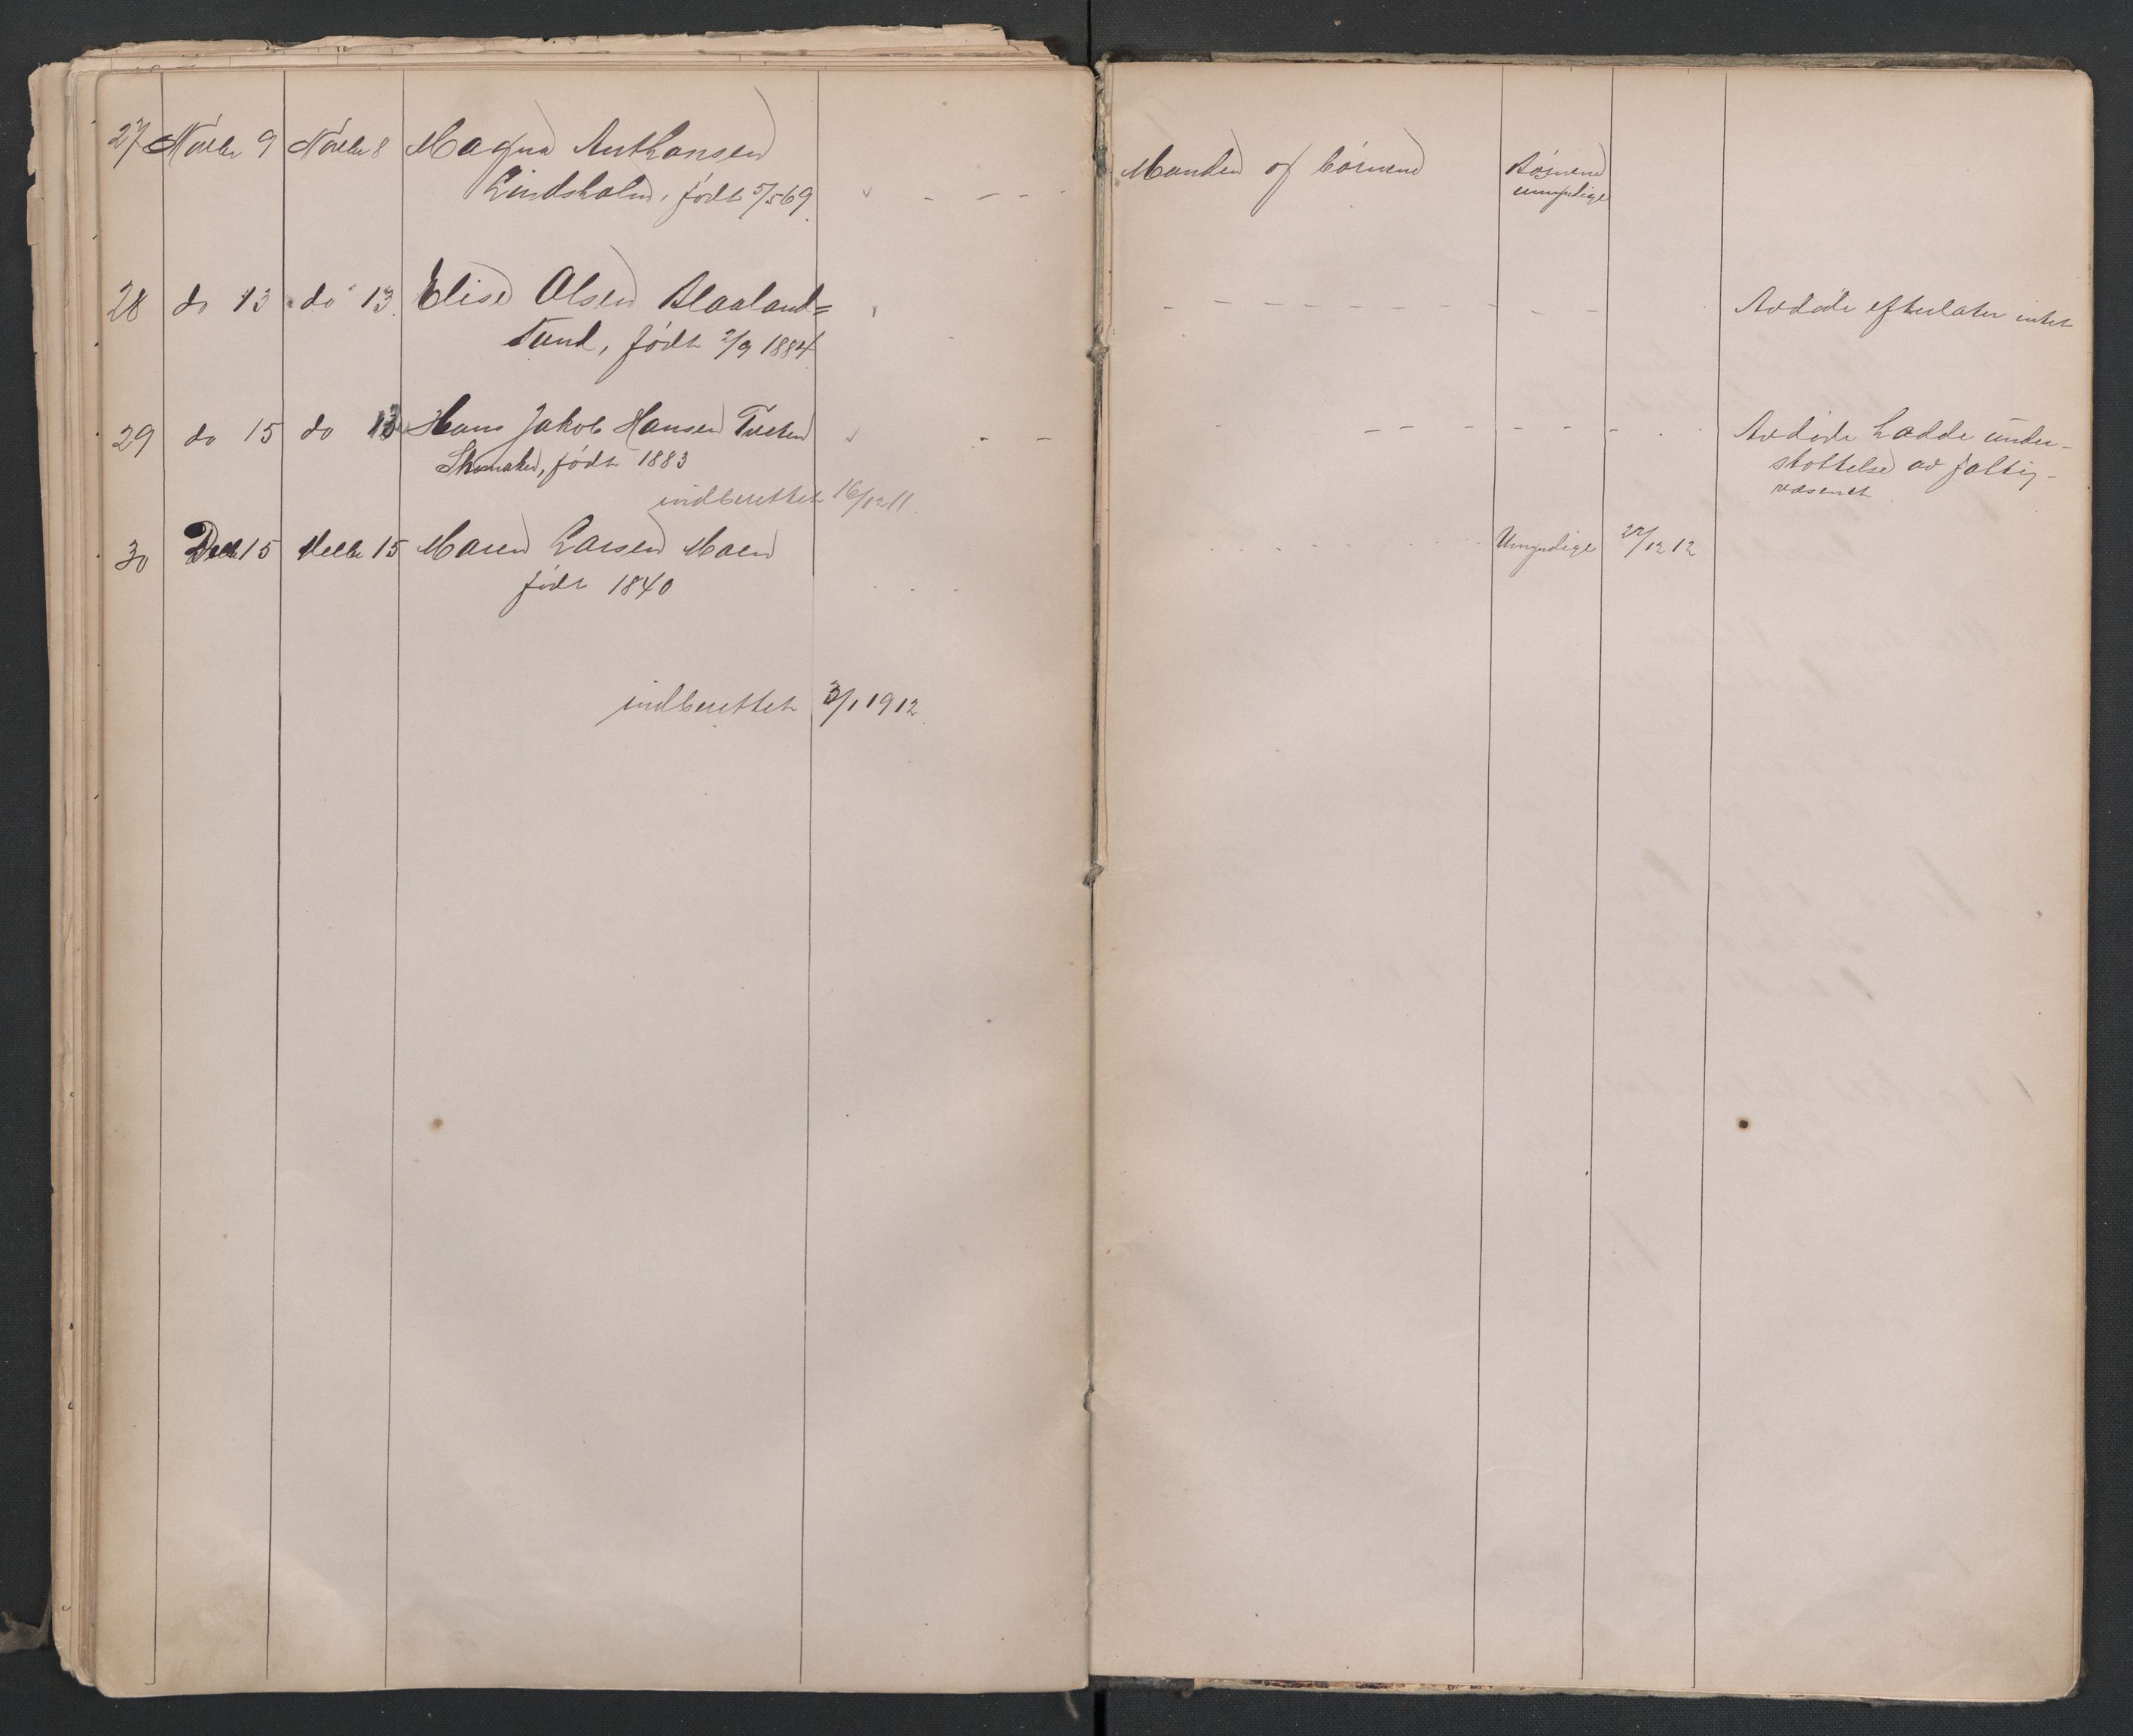 27 Novbr 9 Novbr 8 Magna Anthonsen Manden og börnene Börnene
Lindsholm, född 5/5 69 umyndige
28 do 13 do 13 Elise Olsen Blaaland= Avdöde efterlater intet
Sund, födt 2/9 1884
29 do 15 do 13 Hans Jakob Hansen Tveten Avdöde hadde under-
Skomaker, födt 1883 støttelse av fattig-
indberettet 16/12 11. væsenet
30 Decbr 15 Decbr 15 Maren Larsen Moen Umyndige 22/12 12
födt 1840
indberettet 3/1 1912